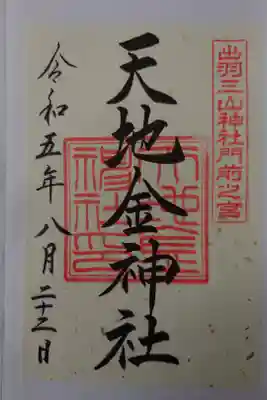 出羽三山神社門前之宮
天地金神社
令和五年八月二十三日